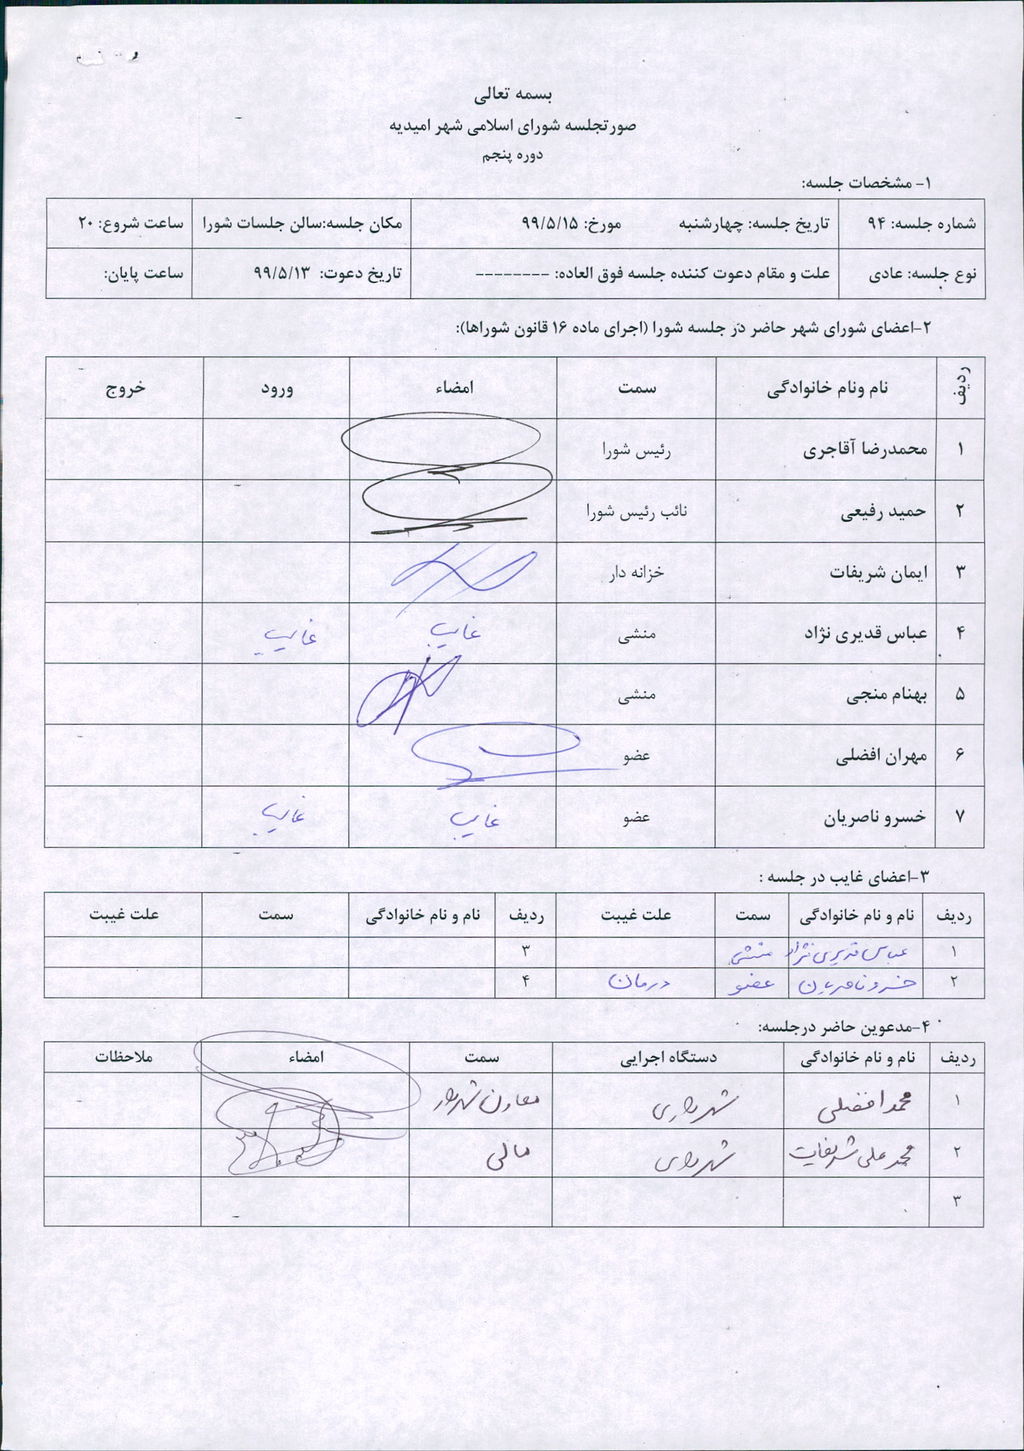 بسمه تعالی
صورتجلسه شورای اسلامی شهر امیدیه
دوره پنجم
۱- مشخصات جلسه:
شماره جلسه: ۹۴ تاریخ جلسه: چهارشنبه مورخ: ۹۹/۵/۱۵ مکان جلسه:سالن جلسات شورا ساعت شروع: ۲۰
نوع جلسه: عادی علت و مقام دعوت کننده جلسه فوق العاده: -------- تاریخ دعوت: ۹۹/۵/۱۳ ساعت پایان:
۲-اعضای شورای شهر حاضر در جلسه شورا (اجرای ماده ۱۶ قانون شوراها):
ردیف نام ونام خانوادگی سمت امضاء ورود خروج
۱ محمدرضا آقاجری رئیس شورا
۲ حمید رفیعی نائب رئیس شورا
۳ ایمان شریفات خزانه دار
۴ عباس قدیری نژاد منشی غایب غایب
۵ بهنام منجی منشی
۶ مهران افضلی عضو
۷ خسرو ناصریان عضو غایب غایب
۳-اعضای غایب در جلسه :
ردیف نام و نام خانوادگی سمت علت غیبت ردیف نام و نام خانوادگی سمت علت غیبت
۱ عباس قدیری نژاد منشی ۳
۲ خسرو ناصریان عضو درمان ۴
۴-مدعوین حاضر درجلسه:
ردیف نام و نام خانوادگی دستگاه اجرایی سمت امضاء ملاحظات
۱ محمد افضلی شهرداری معاون شهردار
۲ محمد علی شریفات شهرداری مالی
۳